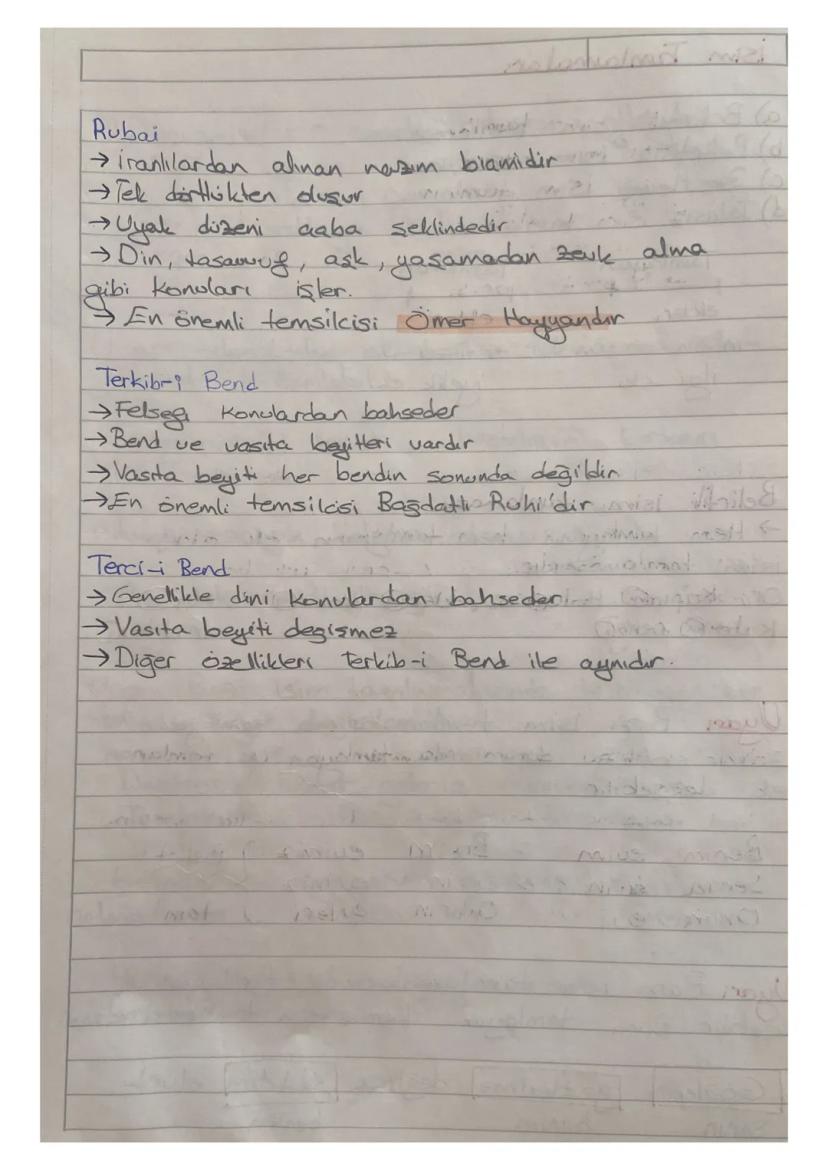 Rubai
→ İranlılardan alınan nazım biçimidir
→ Tek dörtlükten oluşur
→ Uyak düzeni aaba şeklindedir
→ Din, tasavvuf, aşk, yaşamadan zevk alma
gibi konuları işler.
→ En önemli temsilcisi Ömer Hayyandır
Terkib-i Bend
→ Felsefi konulardan bahseder
→ Bend ve vasıta beyitleri vardır
→ Vasıta beyiti her bendin sonunda değildir
→ En önemli temsilcisi Bağdatlı Ruhi'dir
Terci-i Bend
→ Genellikle dini konulardan bahseder
→ Vasıta beyiti degişmez
→ Diğer özellikleri terkib-i Bend ile aynıdır.